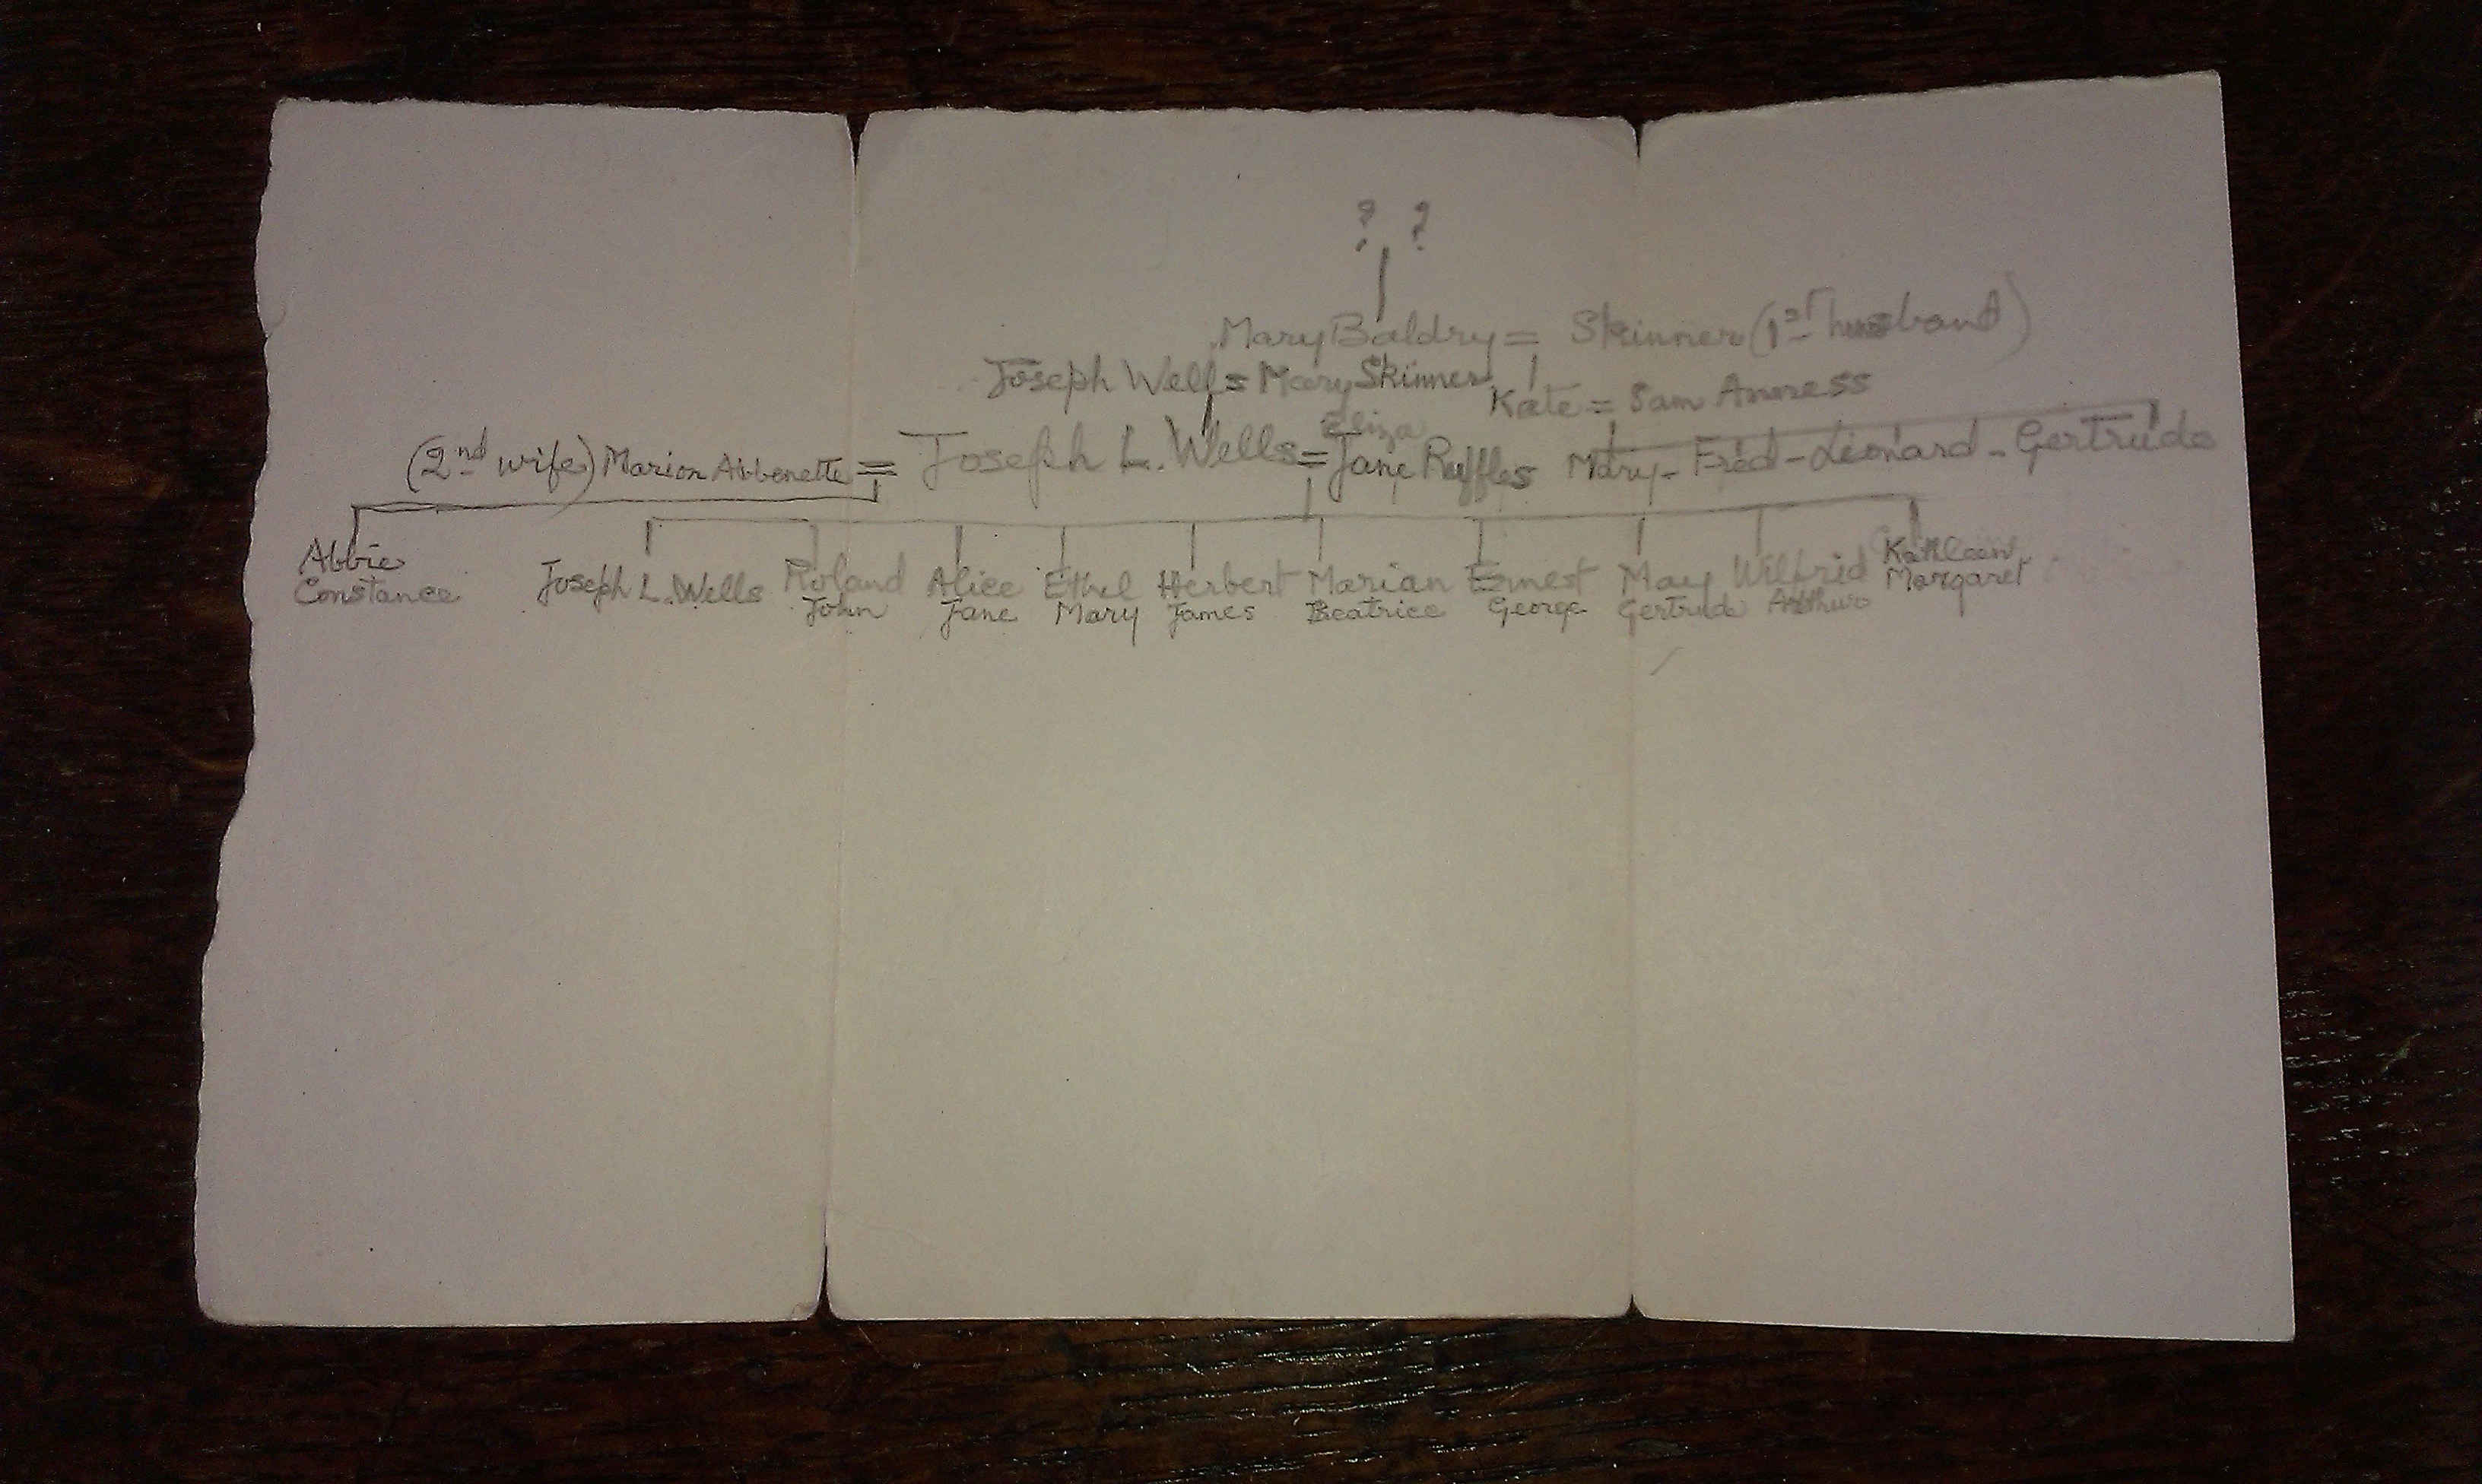 ? ?
Mary Baldry = Skinner (1st husband)
Joseph Wells = Mary Skinner
Kate = Sam Anness
Eliza
(2nd wife) Marion Abbenette = Joseph L. Wells = Jane Ruffles Mary - Fred - Leonard - Gertrude
Abbie Joseph L. Wells Roland Alice Ethel Herbert Marian Ernest May Wilfrid Kathleen
Constance John Jane Mary James Beatrice George Gertrude Arthur Margaret